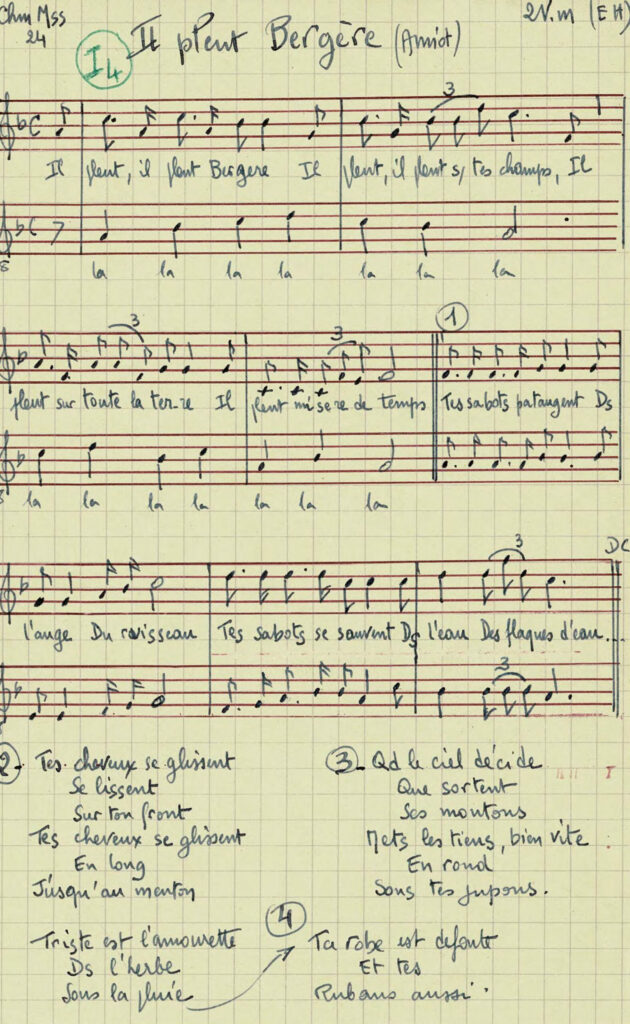 Chm Mss
24
I4
Il pleut Bergère (Amiot)
2V.m (EH)
Il pleut, il pleut Bergere Il pleut, il pleut s/ tes champs, Il
la la la la la la la
pleut sur toute la ter-re Il pleut misere de temps
1
Tes sabots pataugent Ds
la la la la la la la
DC
l'auge Du ruisseau Tes sabots se sauvent Ds l'eau Des flaques d'eau...
2- Tes cheveux se glissent
Se lissent
Sur ton front
Tes cheveux se glissent
En long
Jusqu'au menton
Triste est l'amourette
Ds l'herbe
Sous la pluie
3- Qd le ciel décide
Que sortent
Ses moutons
Mets les tiens, bien vite
En rond
Sous tes jupons.
4
Ta robe est defaite
Et tes
Rubans aussi.